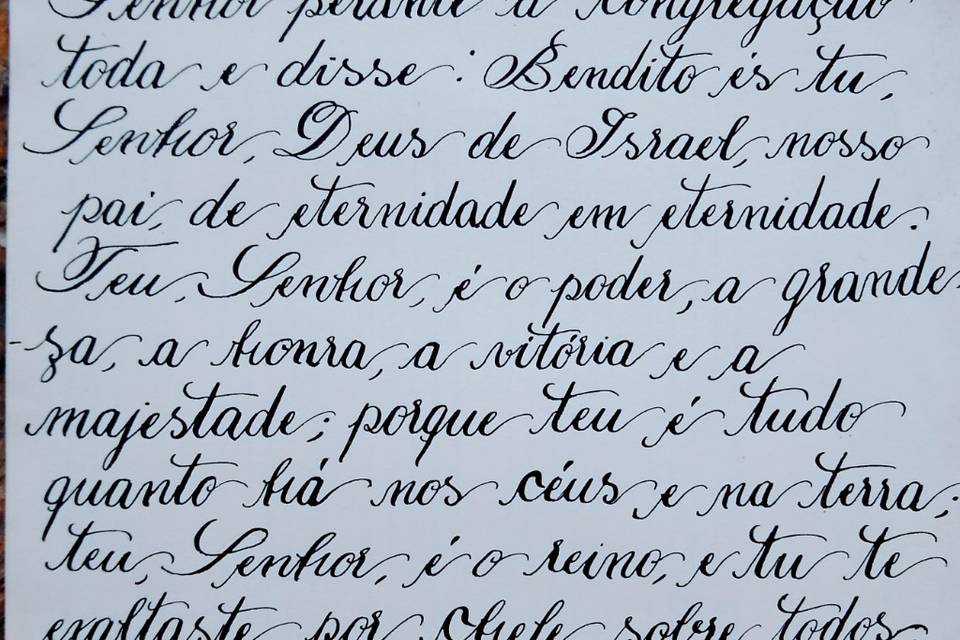 Senhor perante a congregação
toda e disse: Bendito és tu,
Senhor, Deus de Israel, nosso
pai, de eternidade em eternidade.
Teu, Senhor, é o poder, a grande-
-za, a honra, a vitória e a
majestade; porque teu é tudo
quanto há nos céus e na terra;
teu, Senhor, é o reino, e tu te
exaltaste por chefe sobre todos